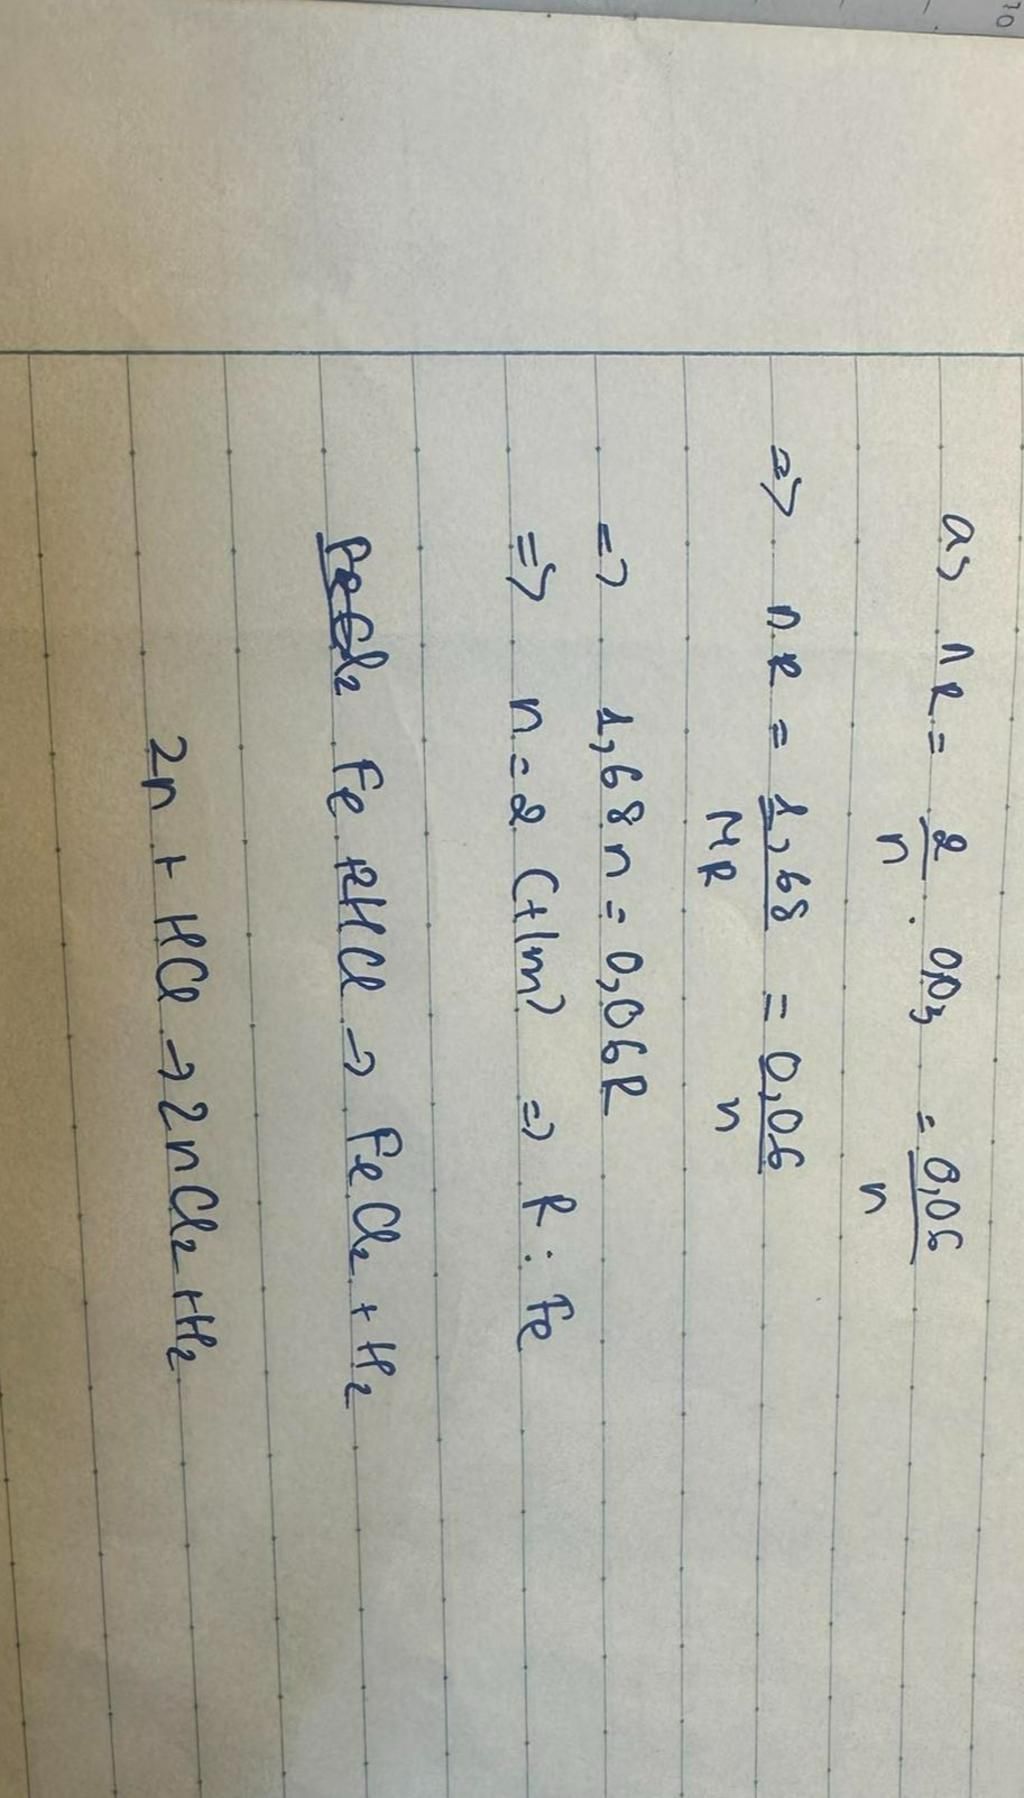 a) nR = 2/n . 0,03 = 0,06/n
=> nR = 1,68/MR = 0,06/n
=> 1,68n = 0,06R
=> n=2 (t/m) => R: Fe
FeCl2 Fe + 2HCl -> FeCl2 + H2
2n + HCl -> 2nCl2 + H2